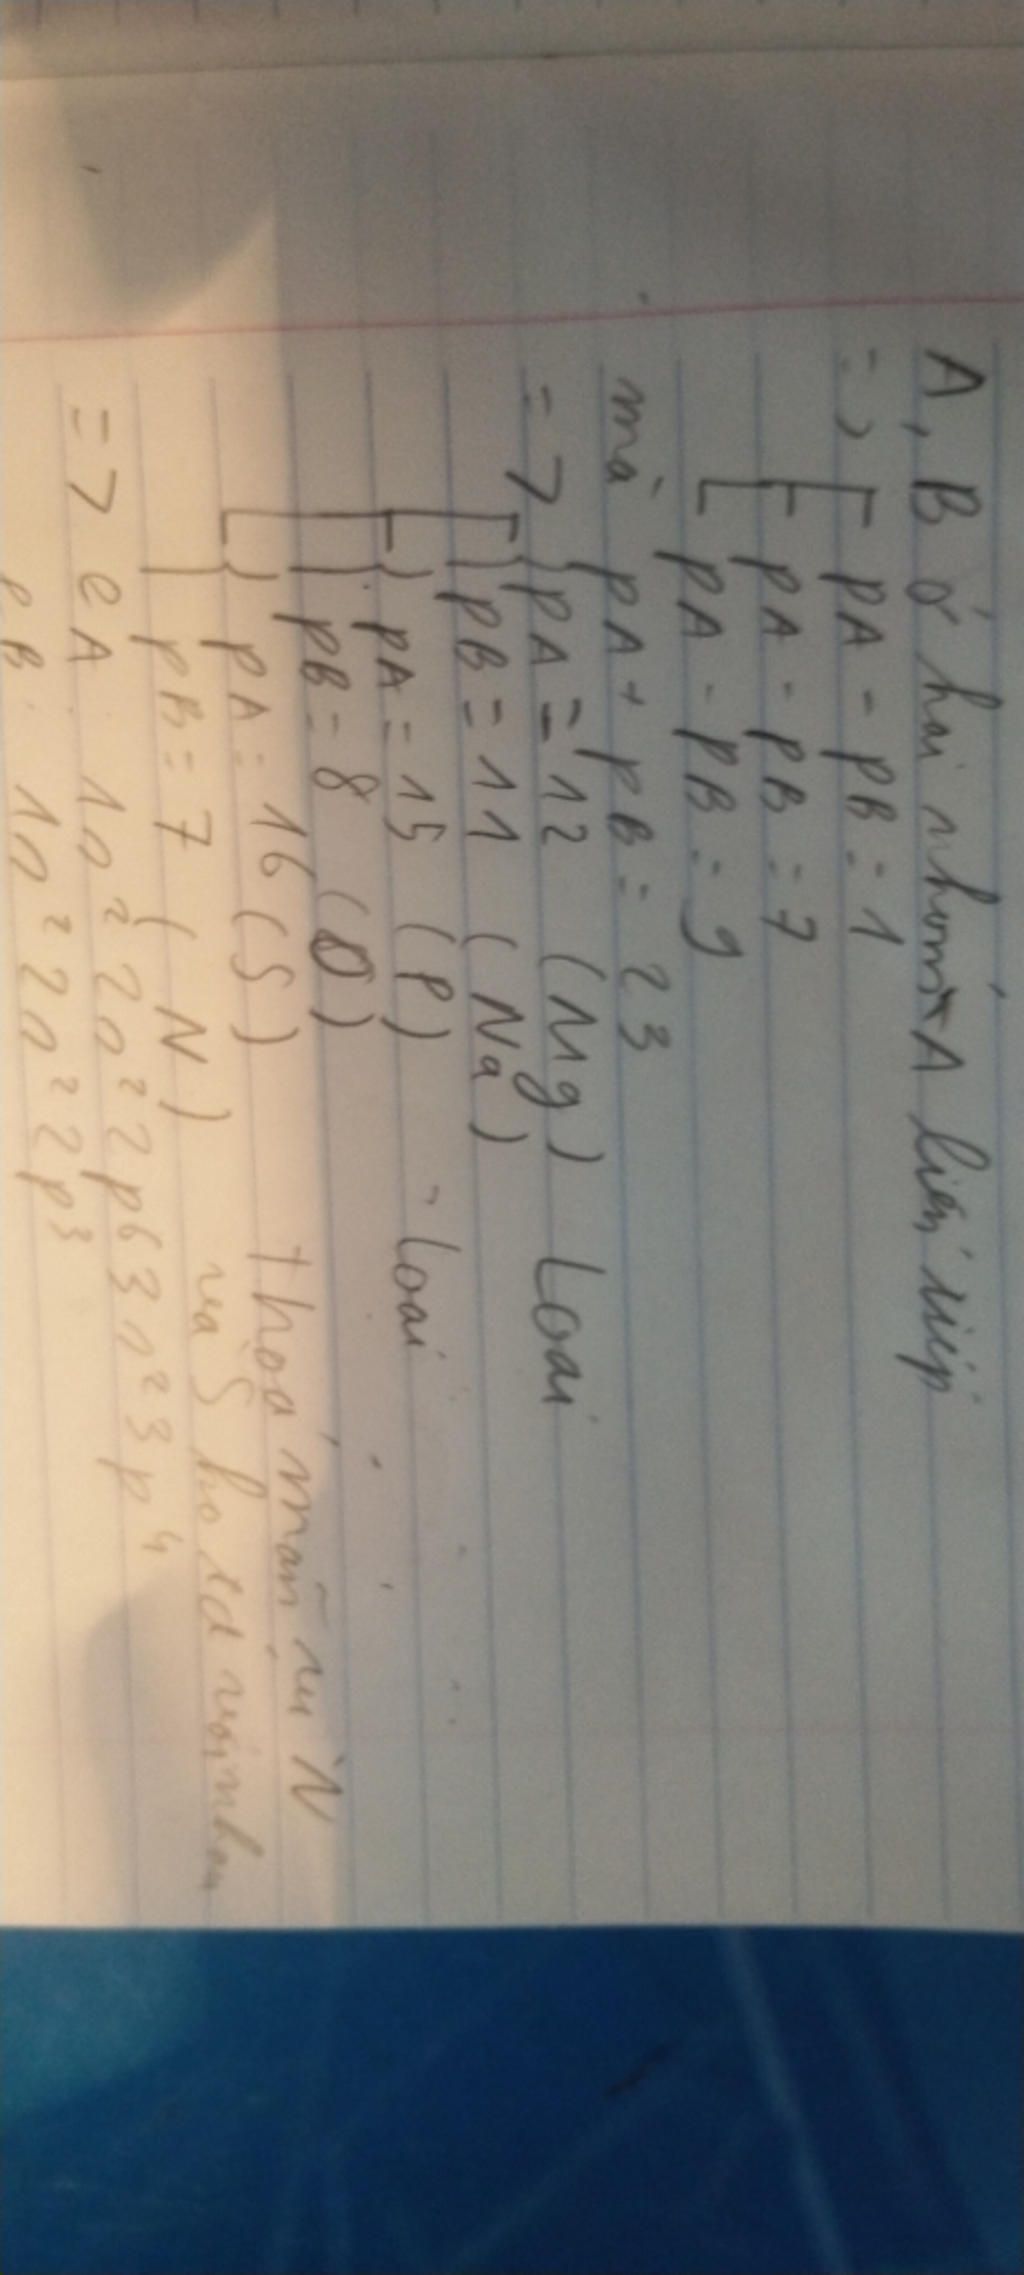 A, B ở hai nhóm A liên tiếp
=> pA - pB = 1
pA - pB = 7
pA - pB = 9
mà pA + pB = 23
=> pA = 12 (Mg) Loại
pB = 11 (Na)
pA = 15 (P) - Loại
pB = 8 (O)
pA = 16 (S) thoả mãn vì N
pB = 7 (N) và S ko td với nhau
=> eA: 1s² 2s² 2p⁶ 3s² 3p⁴
eB: 1s² 2s² 2p³